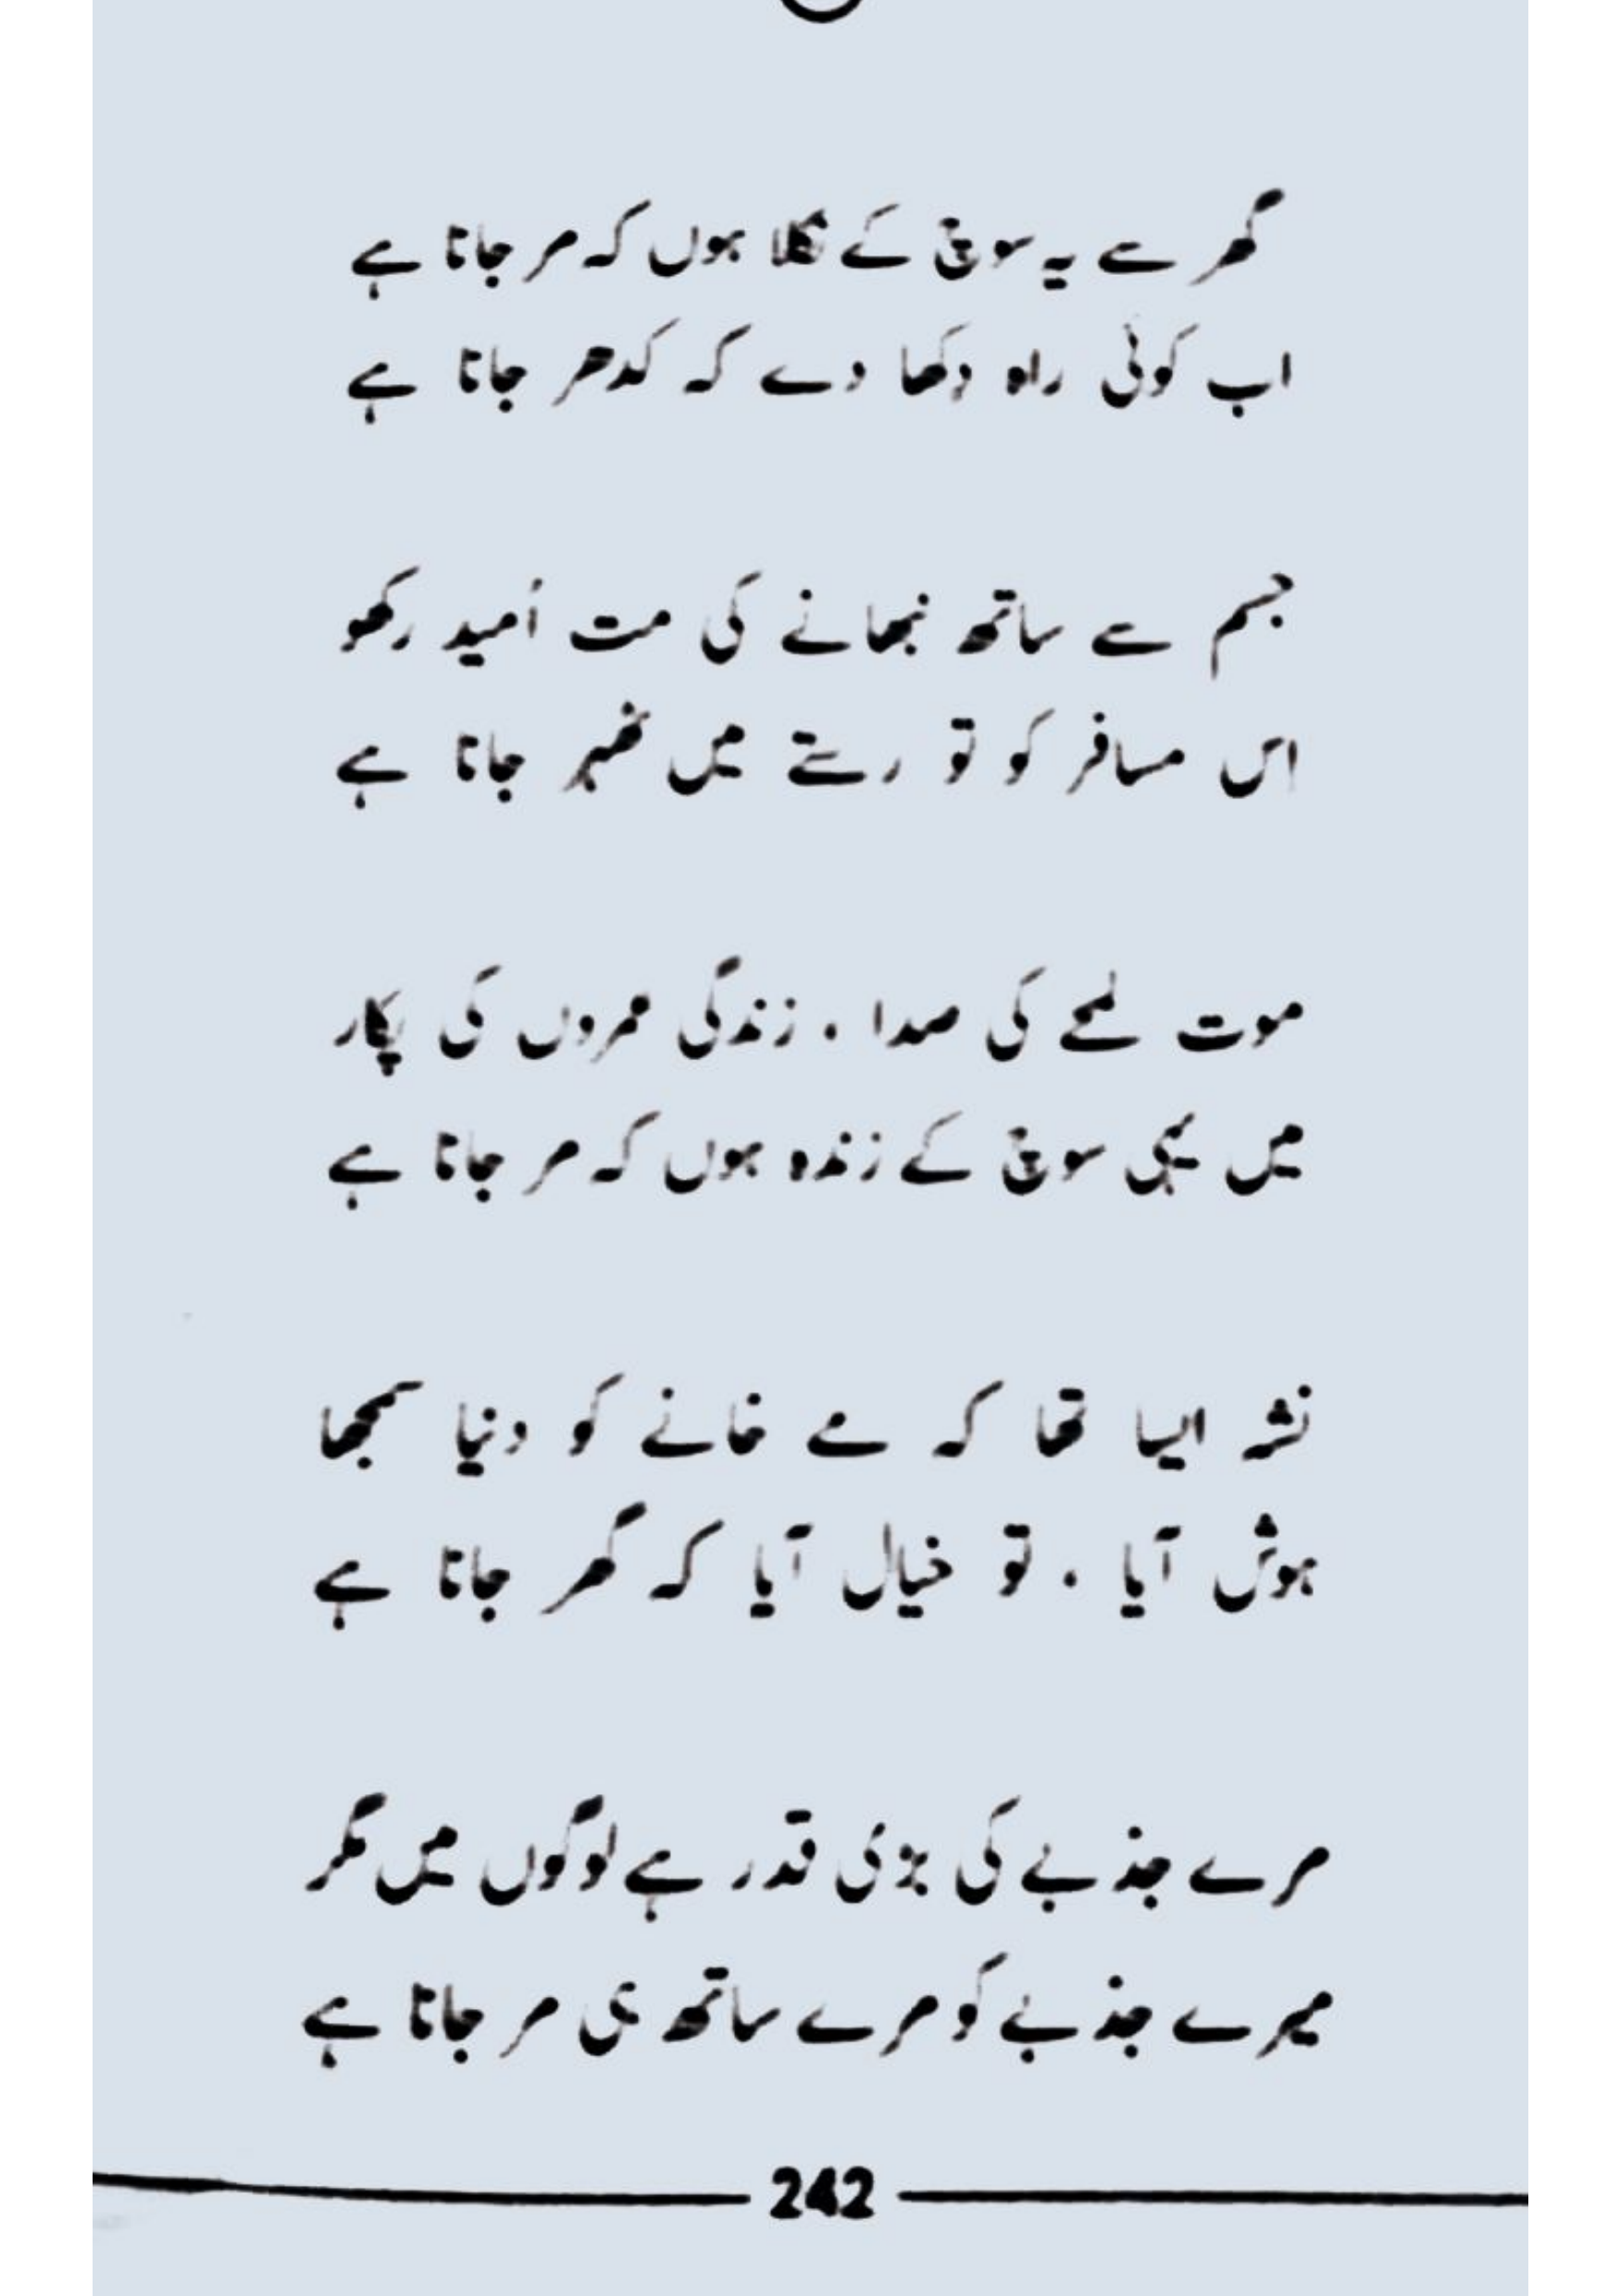 گھر سے یہ سوچ کے نکلا ہوں کہ مر جانا ہے
اب کوئی راہ دکھا دے کہ کدھر جانا ہے
جسم سے ساتھ نبھانے کی مت اُمید رکھو
اس مسافر کو تو رستے میں ٹھہر جانا ہے
موت لمحے کی صدا ، زندگی عمروں کی پکار
میں یہی سوچ کے زندہ ہوں کہ مر جانا ہے
نشہ ایسا تھا کہ مے خانے کو دنیا سمجھا
ہوش آیا ، تو خیال آیا کہ گھر جانا ہے
مرے جذبے کی بڑی قدر ہے لوگوں میں مگر
میرے جذبے کو مرے ساتھ ہی مر جانا ہے
242